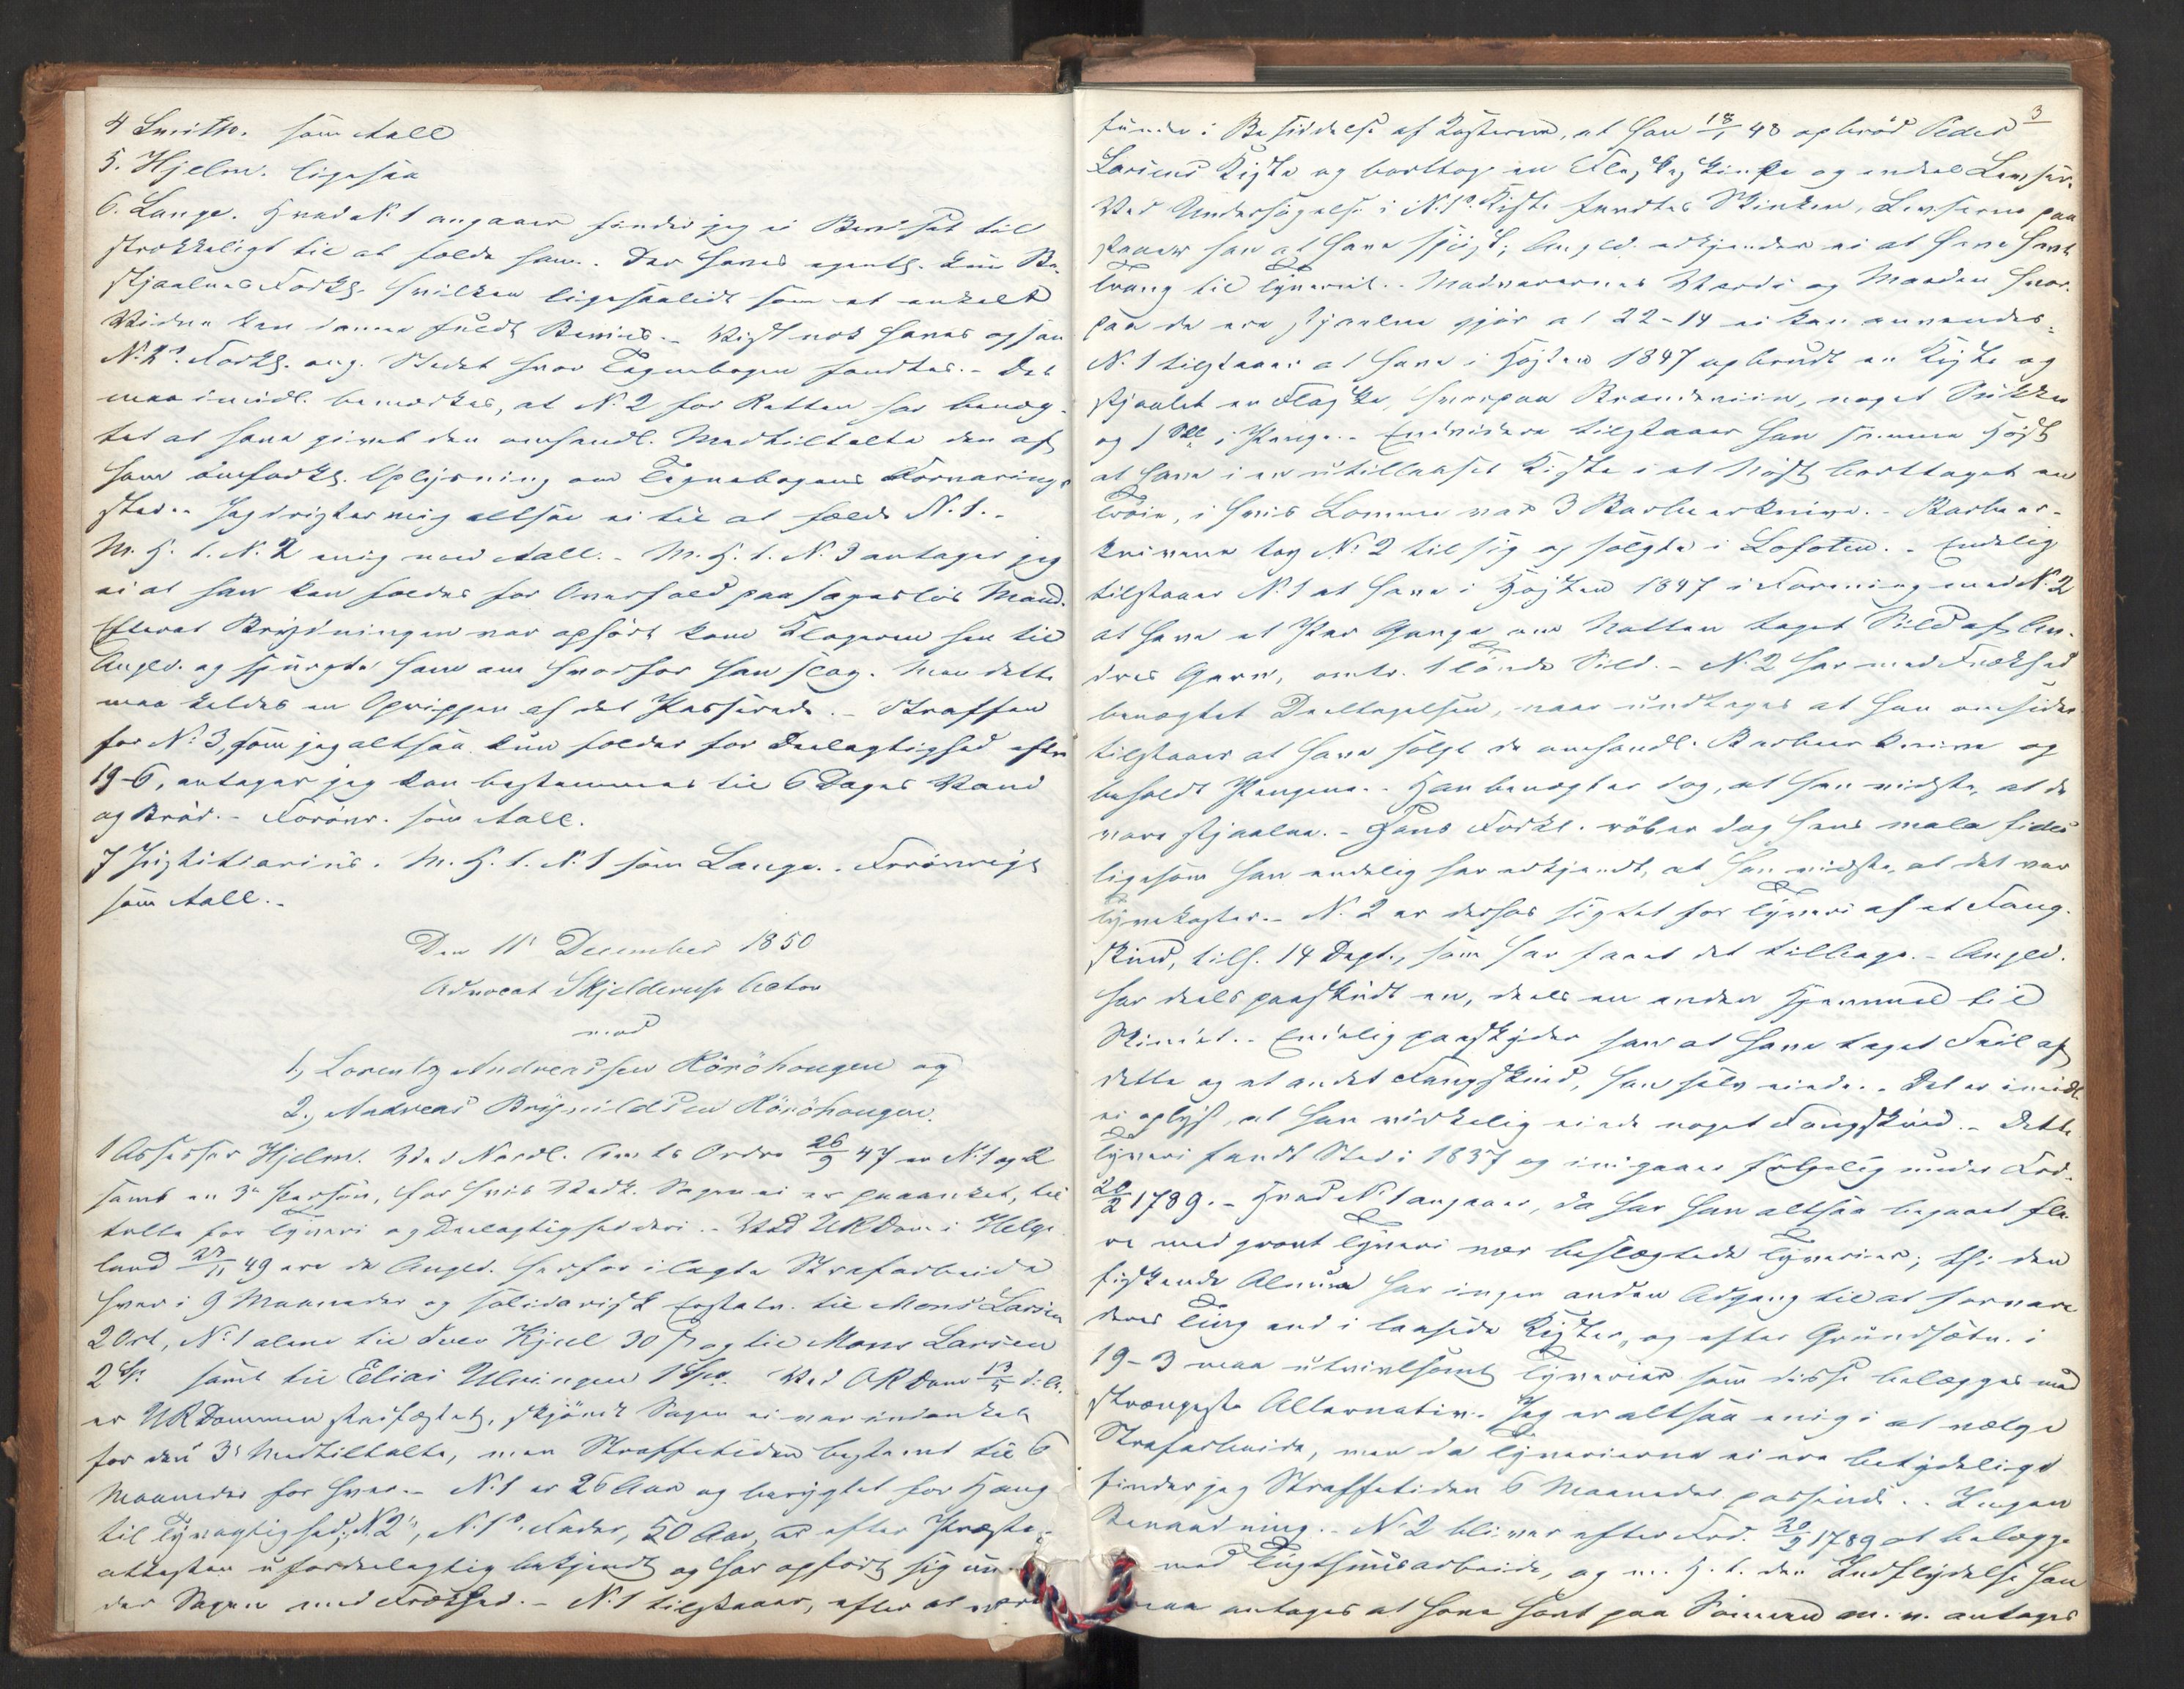 4 Smith. som Aall
5. Hjelm. ligesaa
6. Lange. Hvad N. 1 angaaer finder jeg ei Beviset til
strækkeligt til at fælde ham. Der haves egentl. kun Be-
stjaalnes Forkl. hvilken ligesaalidt som et enkelt
Vidne kan danne fuldt Beviis. - Vistnok haves ogsaa
N. 2s Forkl. ang. Stedet hvor Tegnebogen fandtes. - Det
maa imidl. bemærkes, at N. 2 for Retten har benæg-
tet at have givet den omhandl. Medtiltalte den af
ham omforkl. Oplysning om Tegnebogens Forvarings
sted. - Jeg drister mig altsaa ei til at fælde N. 1. -
M. H. t. N. 2 enig med Aall. - M. H. t. N. 3 antager jeg
ei at han kan fældes for Overfald paa sagesløs Mand.
Efterat Brydningen var ophørt kom Klageren hen til
Angld. og spurgte ham om hvorfor han slog. Men dette
maa kaldes en Opvippen af det Passerede. - Straffen
for N. 3, som jeg altsaa kun fælder for Deelagtighed efter
19-6, antager jeg kan bestemmes til 6 Dages Vand
og Brød. - Forøvr. som Aall.
7 Justitiarius. M. H. t. N. 1 som Lange. - Forøvrigt
som Aall. -
Den 11te December 1850
Advocat Skjelderup Actor
mod
1., Lorentz Andreassen Röröhougen og
2., Andreas Brynildsen Röröhougen.
1 Assessor Hjelm. Ved Nordl. Amts Ordre 26/9 47 er N. 1 og 2
samt en 3die Person, for hvis Vedk. Sagen ei er paaanket, til
talte for Tyveri og Deelagtighed deri. - Ved URDom i Helge-
land 27/11 49 ere de Angld. herfor ilagte Strafarbeide
hver i 9 Maaneder og solidarisk Erstatn. til Mons Larsen
2 Ort, N. 1 alene til Iver Kjeel 30 ß og til Mons Larsen
2 Sp. samt til Elias Ulvingen 1 Spd. Ved ORDom 13/5 d. A.
er URDommen stadfæstet, skjöndt Sagen ei var indanket
for den 3die Medtiltalte, men Straffetiden bestemt til 6
Maaneder for hver. - N. 1 er 26 Aar og berygtet for Hang
til Tyvagtighed; N. 2, N. 1s Fader, 50 Aar, er efter Præste-
attesten ufordeelagtig bekjendt og har opført sig un-
der Sagen med Frækhed. - N. 1 tilstaaer, efter at være
3
funden i Besiddelse af Kosterne, at han 18/1 48 opbrød Peder
Larsens Kiste og borttog en Flesk og endeel Lew ser.
Ved Undersøgelse i N. 1s Kiste fandtes Skinken, Lewserne paa
staaer han at have spiist; Angld. erkjender ei at have havt
Trang til Tyveriet. - Madvarernes Værdi og Maaden hvor-
paa de ere stjaalne gjør at 22-14 ei kan anvendes. -
N. 1 tilstaaer at have i Høsten 1847 opbrudt en Kiste og
stjaalet en Flaske, hvorpaa Brændeviin, noget Sukker
og 1 i Penge. - Endvidere tilstaaer han samme Høst
at have i en utillaaset Kiste i et Nøst borttaget en
Trøie, i hvis Lomme var 3 Barbeerknive. - Barbeer-
knivene tog N. 2 til sig og solgte i Lofoten. - Endelig
tilstaaer N. 1 at have i Høsten 1847 i Forening med N. 2
at have et Par Gange om Natten taget Sild af An-
dres Garn, omtr. 1 Tønde Sild. - N. 2 har med Frækhed
benægtet Deeltagelsen, naar undtages at han omsider
tilstaaer at have solgt de omhandl. Barbeerknive og
beholdt Pengene. - Han benægter dog, at han vidste, at de
vare stjaalne. - Hans Forkl. røber dog hans mala fides
ligesom han endelig har erkjendt, at han vidste, at det var
Tyvekoster. - N. 2 er derhos sigtet for Tyveri af et Fang-
skind, tilh. 14 Dept., som har faaet det tilbage. - Angld.
har deels paaskudt en, deels en anden Hjemmel til
Skindet. - Endelig paaskyder han at have taget Feil af
dette og et andet Fangskind, han selv eiede. - Det er imidl.
ei oplyst, at han virkelig eiede noget Fangskind. - Dette
Tyveri fandt Sted i 1837 og indgaaer følgelig under Frd.
20/2 1789. - Hvad N. 1 angaaer, da har han altsaa begaaet fle-
re med grovt Tyveri nær beslægtede Tyverier; thi den
fiskende Almue har ingen anden Adgang til at forvare
deres Ting end i laasede Kister, og efter Grundsætn. i
19-3 maa utvivlsomt Tyverier som disse belægges med
strængeste Alternativ. Jeg er altsaa enig i at vælge
Strafarbeide, men da Tyverierne ei ere betydelige
finder jeg Straffetiden 6 Maaneder passende. - Ingen
Benaadning. - N. 2 bliver efter Frd. 20/2 1789 at belægge
med Tugthuusarbeide, og m. H. t. den Indflydelse han
maa antages at have havt paa Sønnen m. v. antages